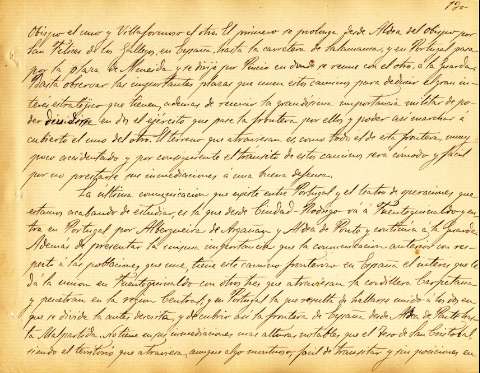 130
Obispo el uno y Villaformoso el otro. El primero se prolonga desde Aldea del Obispo por
San Felices de los Gallegos, en España, hasta la carretera de Salamanca, y en Portugal pasa
por la plaza de Almeida y se dirije por Pincio en donde se reune con el otro, a la Guarda.
Basta observar las importantes plazas que unen estos caminos para deducir el gran in-
teres estratégico que tienen, ademas de reunir la grandisima importancia militar de po-
der dividirse en dos el ejercito que pase la frontera por ellos y poder asi marchar á
cubierto el uno del otro. El terreno que atraviesan es, como todo el de esta frontera, muy
poco accidentado y por consiguiente el tránsito de estos caminos será comodo y facil
por no prestarse sus inmediaciones á una buena defensa.
La ultima comunicacion que existe entre Portugal y el teatro de operaciones que
estamos acabando de estudiar es la que desde Ciudad Rodrigo vá á Fuenteguinaldo y en-
tra en Portugal por Alberguería de Argañan y Aldea de Ponte y continúa a la Guarda.
Ademas de presentar la misma importancia que la comunicacion anterior con res-
pecto á las poblaciones que une, tiene este camino fronterizo en España el interes que le
dá la union en Fuenteguinaldo con otros tres que atraviesan la cordillera Carpetana
y penetran en la region Central, y en Portugal la que resulta de hallarse unido a los dos en
que se divide la antes descrita, y al cubrir asi la frontera de España desde Aldea de Ponte has-
ta Malpartida, no tiene en sus inmediaciones mas alturas notables que el Teso de San Cristobal
siendo el territorio que atraviesa, aunque algo montuoso, facil de transitar y sus posiciones en